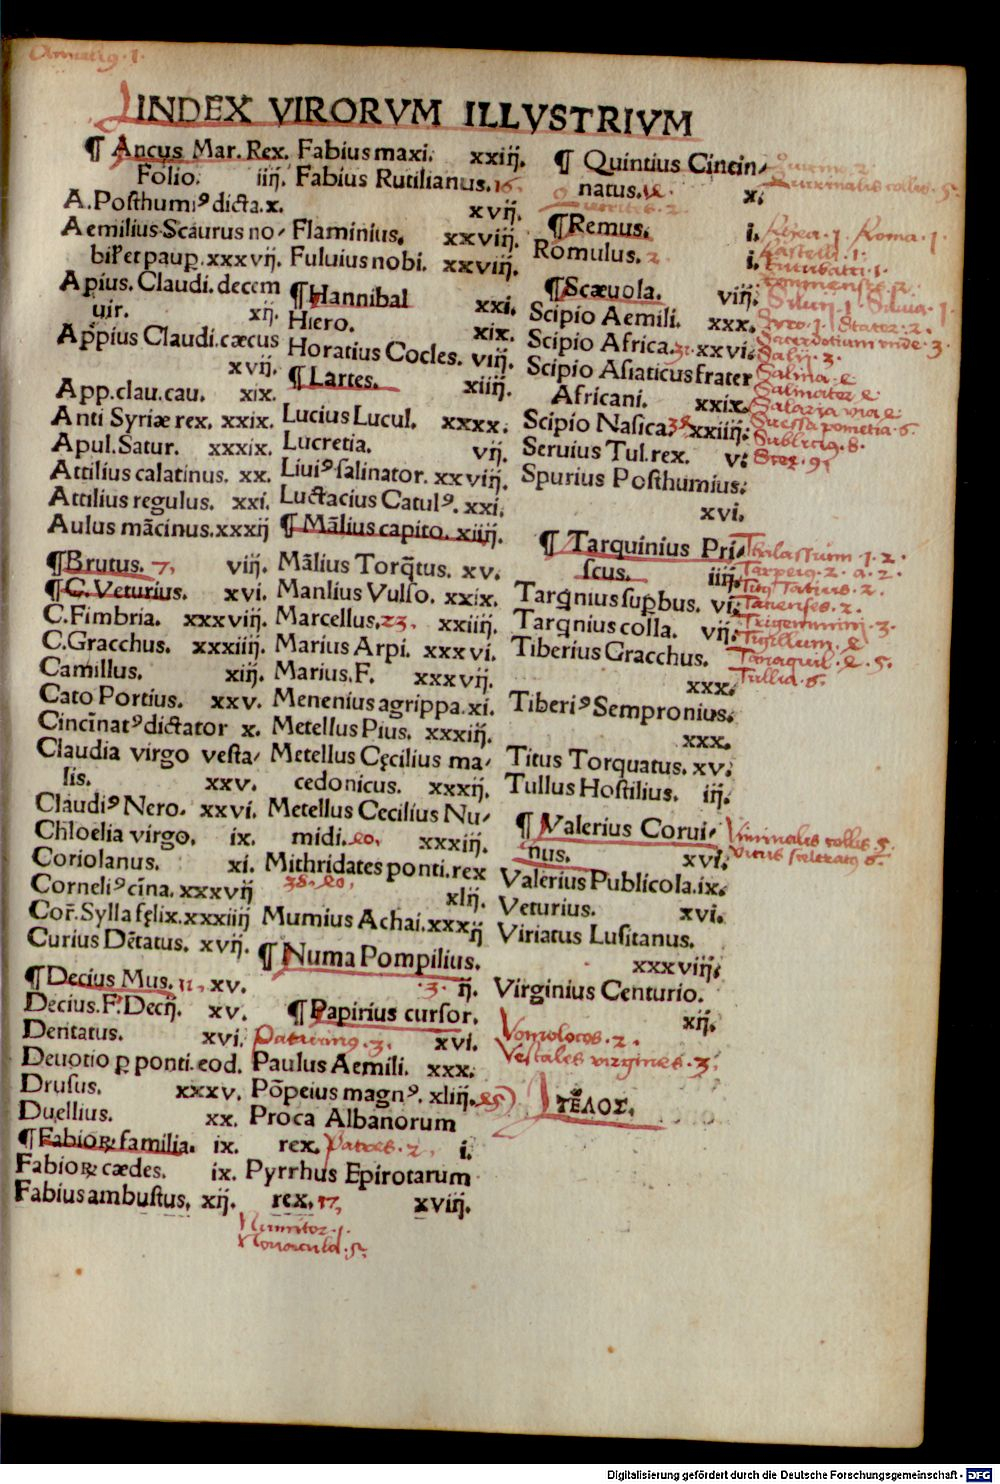 INDEX VIRORVM ILLVSTRIVM
¶ Ancus Mar. Rex.
Folio. iiij.
A. Posthumiꝰ dicta. x.
Aemilius Scaurus no⸗
bil᷑ et paup. xxxvij.
Apius. Claudi. decem
uir. xij.
Appius Claudi. cæcus
xvij.
App. clau. cau. xix.
Anti Syriæ rex. xxix.
Apul. Satur. xxxix.
Attilius calatinus. xx.
Attilius regulus. xxi.
Aulus mãcinus. xxxij
¶ Brutus. 7, viij.
¶ C. Veturius. xvi.
C. Fimbria. xxxviij.
C. Gracchus. xxxiiij.
Camillus. xiij.
Cato Portius. xxv.
Cincĩnatꝰ dictator x.
Claudia virgo vesta⸗
lis. xxv.
Claudiꝰ Nero. xxvi.
Chloelia virgo. ix.
Coriolanus. xi.
Corneliꝰ cĩna. xxxvij
Cor̃. Sylla fęlix. xxxiiij
Curius Dẽtatus. xvij.
¶ Decius Mus. 11, xv.
Decius. F. Decij. xv.
Dentatus. xvi.
Deuotio ꝑ ponti. eod.
Drusus. xxxv.
Duellius. xx.
¶ Fabioꝝ familia. ix.
Fabioꝝ cædes. ix.
Fabius ambustus. xij.
Fabius maxi. xxiij.
Fabius Rutilianus. 16.
xvij.
Flaminius. xxviij.
Fuluius nobi. xxviij.
¶ Hannibal xxi.
Hiero. xix.
Horatius Cocles. viij.
¶ Lartes. xiiij.
Lucius Lucul. xxxx.
Lucretia. vij.
Liuiꝰ salinator. xxviij.
Luctacius Catulꝰ. xxi.
¶ Mãlius capito. xiiij.
Mãlius Torq̃tus. xv.
Manlius Vulso. xxix.
Marcellus. 23, xxiiij.
Marius Arpi. xxxvi.
Marius. F. xxxvij.
Menenius agrippa. xi.
Metellus Pius. xxxiij.
Metellus Cęcilius ma⸗
cedonicus. xxxij.
Metellus Cecilius Nu⸗
midi. xxxiij.
Mithridates ponti. rex
xlij.
Mumius Achai. xxxij
¶ Numa Pompilius.
.3. ij.
¶ Papirius cursor.
xvi.
Paulus Aemili. xxx.
Põpeius magnꝰ. xliij.
Proca Albanorum
rex. Patres. 2, i.
Pyrrhus Epirotarum
rex. 17, xviij.
Numitor. 1.
Nouacula. 5.
¶ Quintius Cincin⸗
natus. x.
¶ Remus. i.
Romulus. 2 i.
¶ Scæuola. viij.
Scipio Aemili. xxx.
Scipio Africa. xxvi.
Scipio Asiaticus frater
Africani. xxix.
Scipio Nasica. xxiiij.
Seruius Tul. rex. v.
Spurius Posthumius.
xvi.
¶ Tarquinius Pri⸗
scus. iiij.
Tarqnius supbus. vi.
Tarqnius colla. vij.
Tiberius Gracchus.
xxx.
Tiberiꝰ Sempronius.
xxx.
Titus Torquatus. xv.
Tullus Hostilius. iij.
¶ Valerius Corui⸗
nus. xvi.
Valerius Publicola. ix.
Veturius. xvi.
Viriatus Lusitanus.
xxxviij.
Virginius Centurio.
xij.
Vomolocos. 2.
Vestales virgines. 3.
ΤΕΛΟΣ.
Quirinalis collis. 5.
Quirites. 2.
Rhea. 1. Roma. 1
Siluij. 1 Siluia. 1
Sacerdotium unde. 3
Salij. 3.
Suessa pometia. 6.
Thalassium. 1. 2.
Tatienses. 2.
Trigemini. 3.
Tanaquil. 5.
Tullia. 6.
Viminalis collis. 5.
Vicus sceleratꝰ 6.
Digitalisierung gefördert durch die Deutsche Forschungsgemeinschaft - DFG